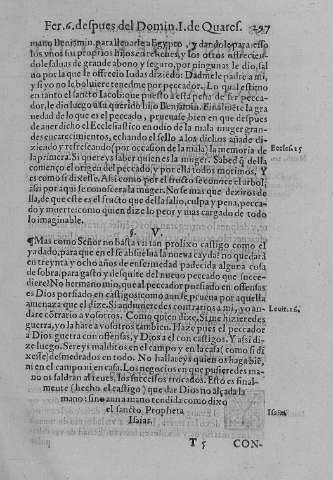 Fer. 6. despues del Domin. I. de Quares. 297
mano Benjamin, para lleuarle a Egypto, y dandolo para esso
los vnos sus proprios hijos en rehenes, y los otros ofreciendo
le saluas de grande abono y seguro, por ningunas le dio, sal
no por la que le ofrecio Iudas diziedo: Dadmele padre a mi,
y si yo no le boluiere teneedme por peccador. Lo qual estimo
en tanto el sancto Iacob: que puesto a esta pena de ser pecca-
dor, le dio luego a su querido hijo Benjamin. Finalmēte la gra
uedad de lo que es el peccado, prueuase bien en que despues
de auer dicho el Ecclesiastico en odio de la mala muger gran-
des encarecimientos, echando el sello a los dichos añade di-
ziendo y refrescando (por occasion de la mala) la memoria de
la primera. Si quereys saber quien es la muger. Sabed q̃ della
començo el origen del peccado, y por ella todos morimos. Y
es como si dixesse. Assi como por el fructo se conoce el arbol,
assi por aqui se conocera la muger. No se mas que deziros de
lla, de que este es el fructo que della salio, culpa y pena, pecca-
do y muerte: como quien dize lo peor y mas cargado de todo
lo imaginable.
Ecclesi. 25
§. V.
¶ Mas como Señor no basta vn tan prolixo castigo como el
ya dado, para que en el se absuelua la nueua cayda? no quedarâ
en treynta y ocho años de enfermedad padecida alguna cosa
de sobra, para gasto y desquite del nueuo peccado que succe-
diere? No hermano mio, que al peccador porfiado en offensas
es Dios porfiado en castigos: como aun se prueua por aquella
amenaza que el dize. Si anduuieredes contrarios a mi, yo an-
dare cõtrario a vosotros. Como quien dize. Si me hizieredes
guerra, yo la hare a vosotros tambien. Haze pues el peccador
a Dios guerra con offensas, y Dios a el con castigos. Y assi di-
ze luego. Sereys malditos en el campo y en la casa (como si di
xesse) desmedrados en todo. No hallareys quien os haga bien,
ni en el campo ni en casa. Los negocios en que pusieredes ma-
no os saldran atreues, los successos trocados. Esto es final-
mente (hecho el castigo) que dar Dios no alçada la
mano: sino aun la mano tendida como dixo
el sancto Propheta
Isaias.
Leuit. 26.
Isaiæ
T 5 CON-